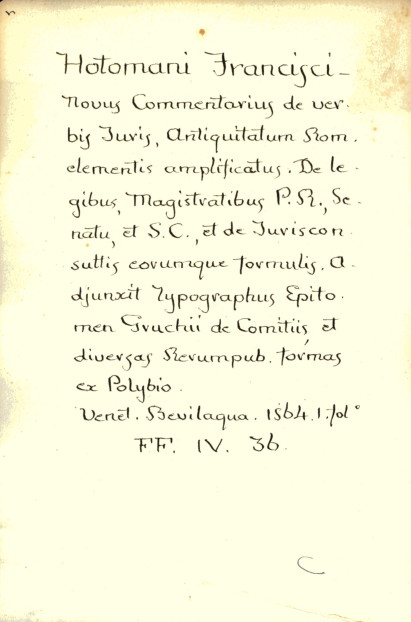 Hotomani Francisci -
Novus Commentarius de ver-
bis Juris, Antiquitatum Rom.
elementis amplificatus. De le-
gibus, Magistratibus P. R., Se-
natu, et S. C., et de Juriscon
sultis eorumque formulis. A-
djunxit Typographus Epito-
men Gruchii de Comitiis et
diversas Rerumpub. formas
ex Polybio.
Venet. Bevilaqua. 1564. 1. fol°
FF. IV. 36.
C